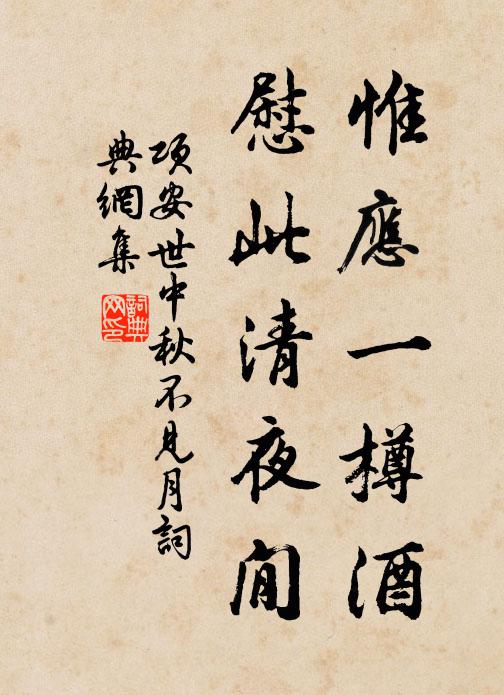 惟應一樽酒
慰此清夜閒
項安世中秋不見月詞
典網集
詞典网印